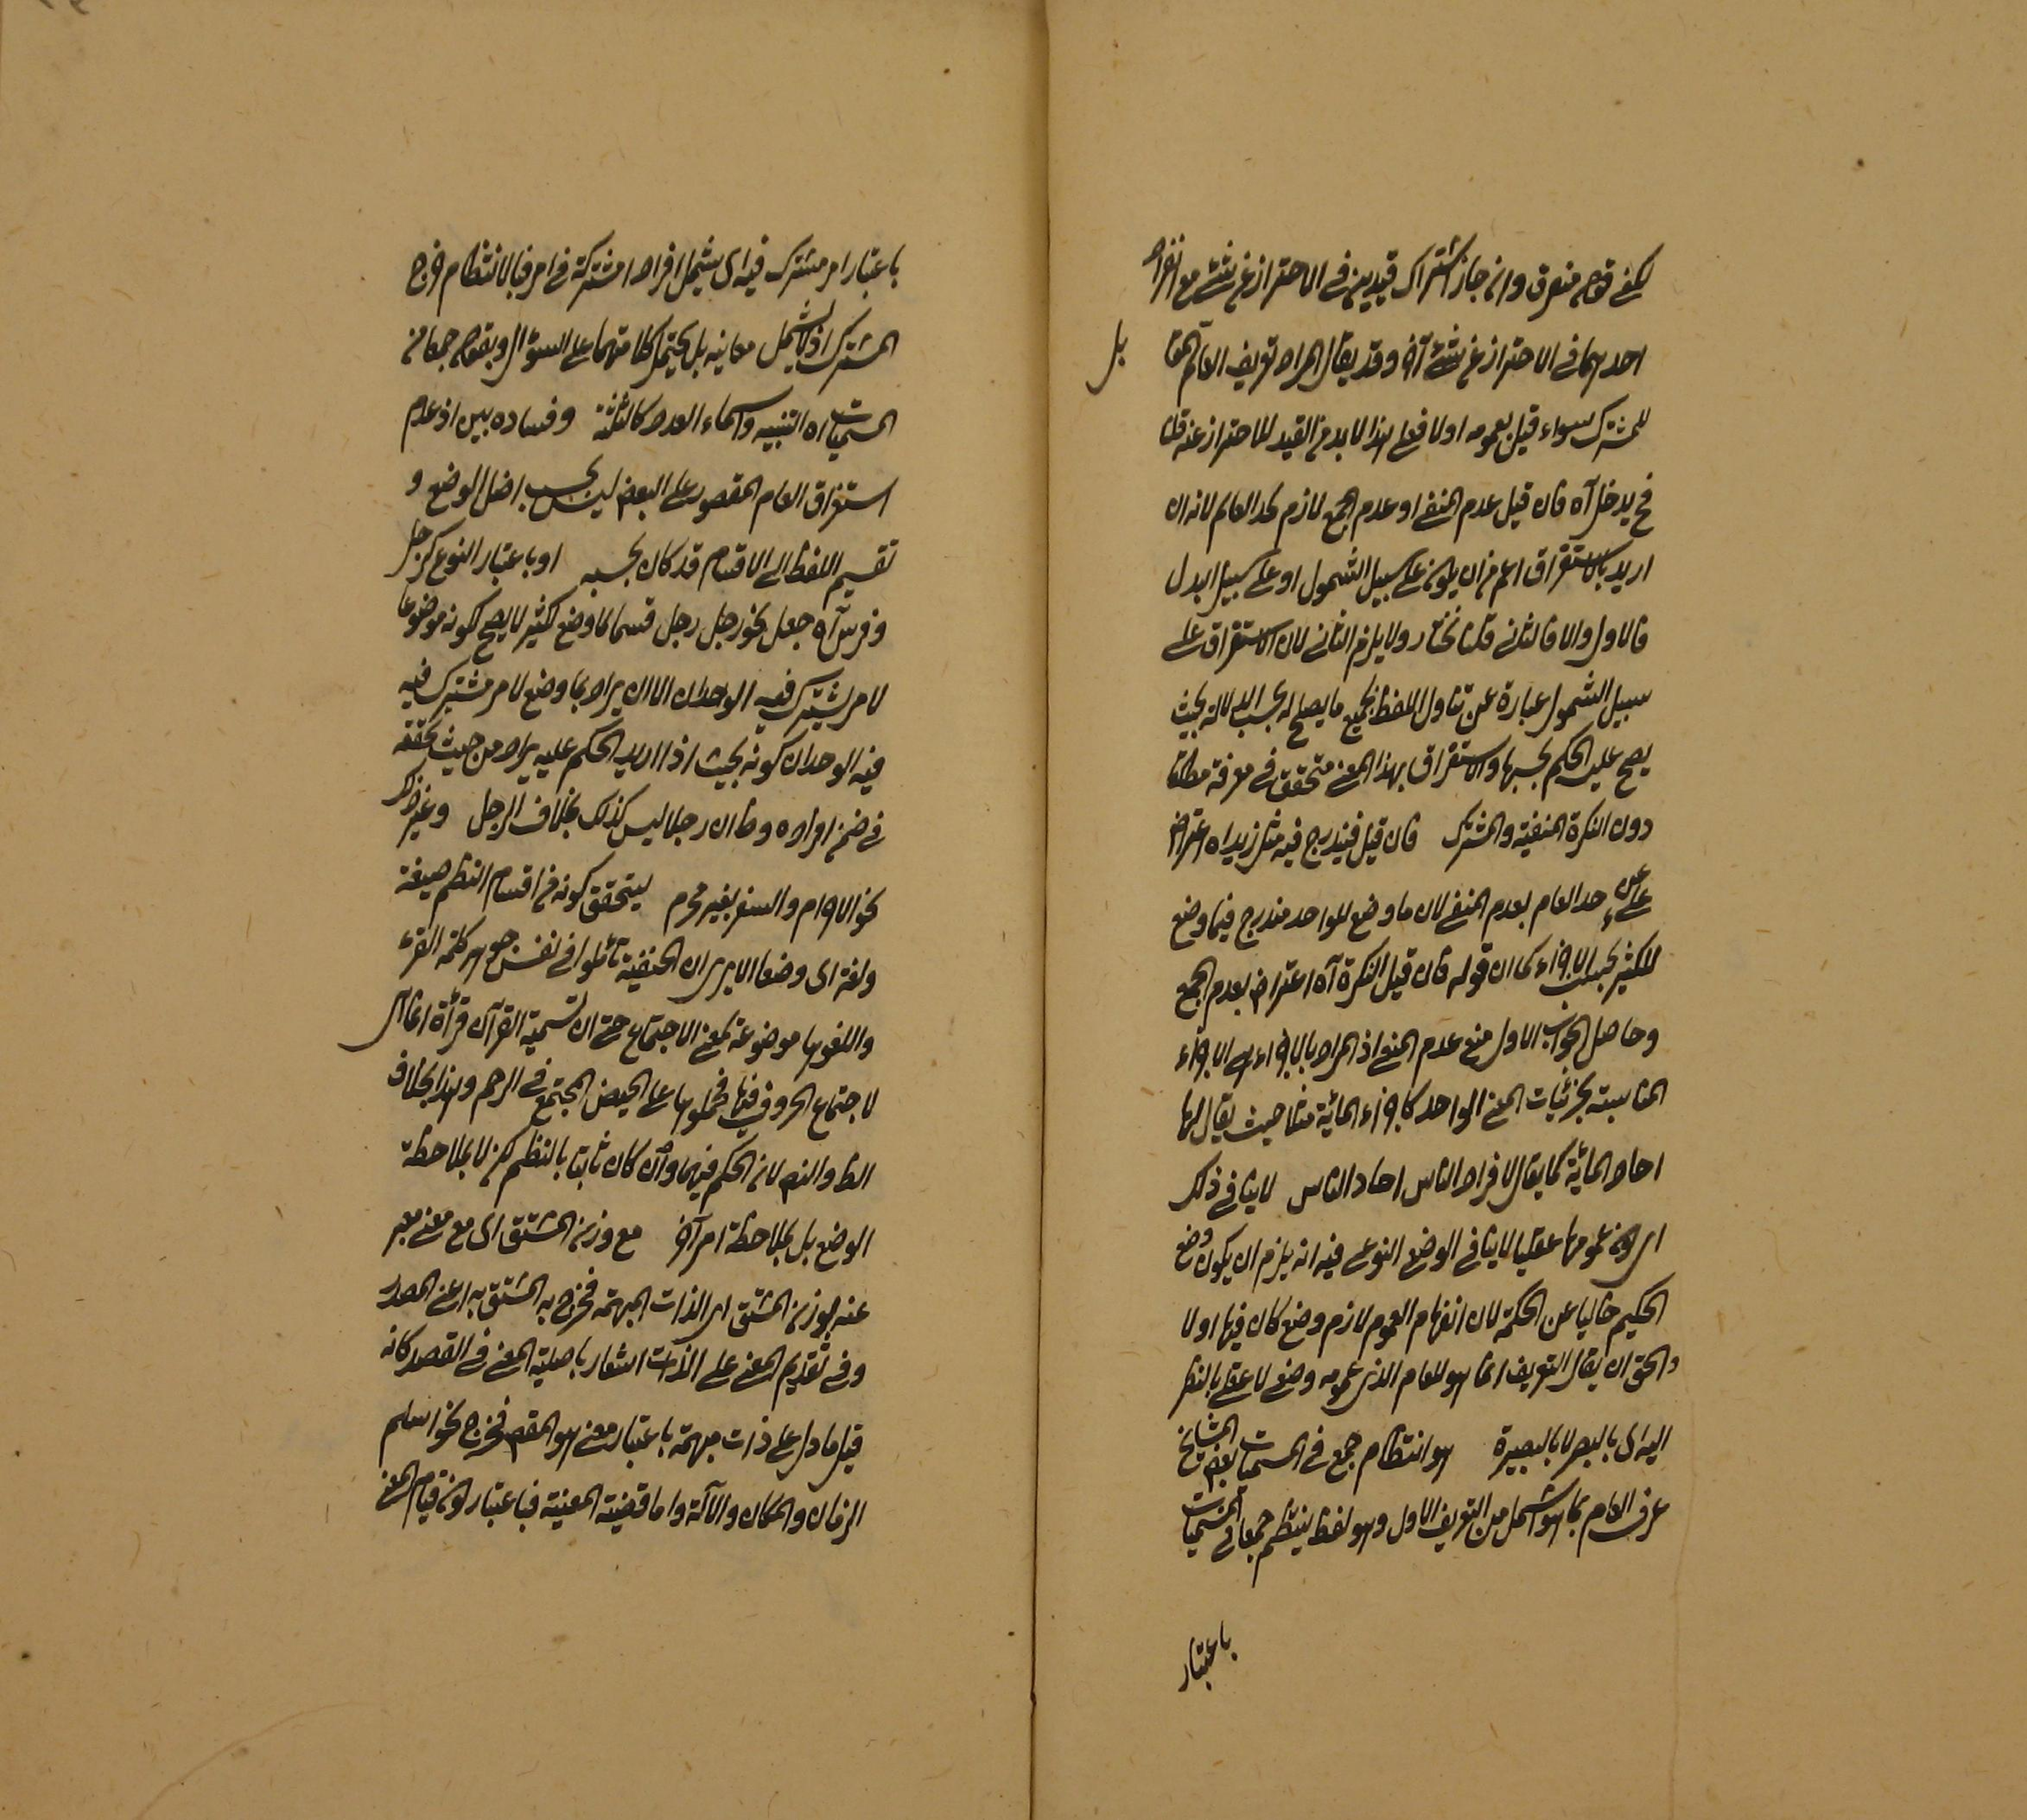 لكنه قوله مستغرق وان جاز اشتراك قيدين في الاحتراز عن شئ مع انفراد
احدهما في الاحتراز عن شئ آخر وقد يقال المراد تعريف العام المقابل
للمشترك سواء قيل بعمومه اولا فعلى هذا لا بد من القيد للاحتراز عنه قلنا
فح يدخل آه فان قيل عدم المنع او عدم الجمع لازم لحد العام لانه ان
اريد بالاستغراق اعم من ان يكون على سبيل الشمول او على سبيل البدل
فالاول والا فالثاني قلنا نختار ولا يلزم الثاني لان الاستغراق على
سبيل الشمول عبارة عن تناول اللفظ لجميع ما يصلح له بحسب الدلالة بحيث
يصح عليه الحكم بحسبها والاستغراق بهذا المعنى متحقق في معرفة مطلقا
دون النكرة المنفية والمشترك فان قيل فيندرج فيه مثل زيد اه اعتراض
على حد العام بعدم المنع لان ما وضع للواحد مندرج فيما وضع
للكثير بحسب الاجزاء كما ان قوله فان قيل النكرة آه اعتراض بعدم الجمع
وحاصل الجواب الاول منع عدم المنع اذ المراد بالاجزاء هي الاجزاء
المناسبة بجزئيات المعنى الواحد كاجزاء المائة مثلا حيث يقال لها
احاد المائة كما يقال لافراد الناس احاد الناس لا ينافي ذلك
اي كون عمومها عقليا لا ينافي الوضع النوعي فيه انه يلزم ان يكون وضع
الحكيم خاليا عن الحكمة لان انفهام العموم لازم وضع كان فيها اولا
والحق ان يقال التعريف انما هو للعام الذي عمومه وضعي لا عقلي بالنظر
اليه اي بالبصر لا بالبصيرة هو انتظام جمع في المسميات بعض المشايخ
عرف العام بما هو اشمل من التعريف الاول وهو لفظ ينتظم جمعا في المسميات
باعتبار
باعتبار امر مشترك فيه اي يشمل افرادا مشتركة في امر فبالانتظام خرج
المشترك اذ لا يشمل معانيه بل يحتمل كلا منهما على السؤال وبقوله جمعا من
المسميات اه التثنية واسماء العدد كالثلثة وفساده بين اذ عدم
استغراق العام المقصور على البعض ليس بحسب اصل الوضع و
تقسيم اللفظ الى الاقسام قد كان بحسبه او باعتبار النوع كرجل
وفرس آه جعل نحو رجل رجل قسما لما وضع لكثير لا يصح لكونه موضوعا
لامر يشترك فيه الوحدان الا ان يراد بما وضع لامر مشترك فيه
فيه الوحدان كونه بحيث اذا اريد الحكم عليه يراد من حيث تحققه
في ضمن افراده وظ ان رجلا ليس كذلك بخلاف الرجل وغير ذلك
نحو الاحرام والسفر بغير محرم ليتحقق كونه من اقسام النظم صيغة
ولغة اي وضعا الا يرى ان الحنفية تأملوا في نفس جوهر كلمة القرء
واللغويها موضوعة لمعنى الاجتماع حتى ان تسمية القرآن قرآنا انما هي
لاجتماع الحروف فيها فحملوها على الحيض المجتمع في الرحم وهذا بخلاف
الظ والنص لان الحكم فيهما وان كان ثابتا بالنظم لكن لا بملاحظة
الوضع بل بملاحظة امر آخر مع وزن المشتق اي مع معنى معبر
عنه بوزن المشتق اي الذات المبهمة فخرج به المشتق به اعني المصدر
وفي تقديم المعنى على الذات اشعار باصلية المعنى في القصد كانه
قيل ما دل على ذات مبهمة باعتبار معنى هو المقصود فخرج نحو اسلم
الزمان والمكان والآلة واما قضية المعينة فباعتبار كون قيام المعنى